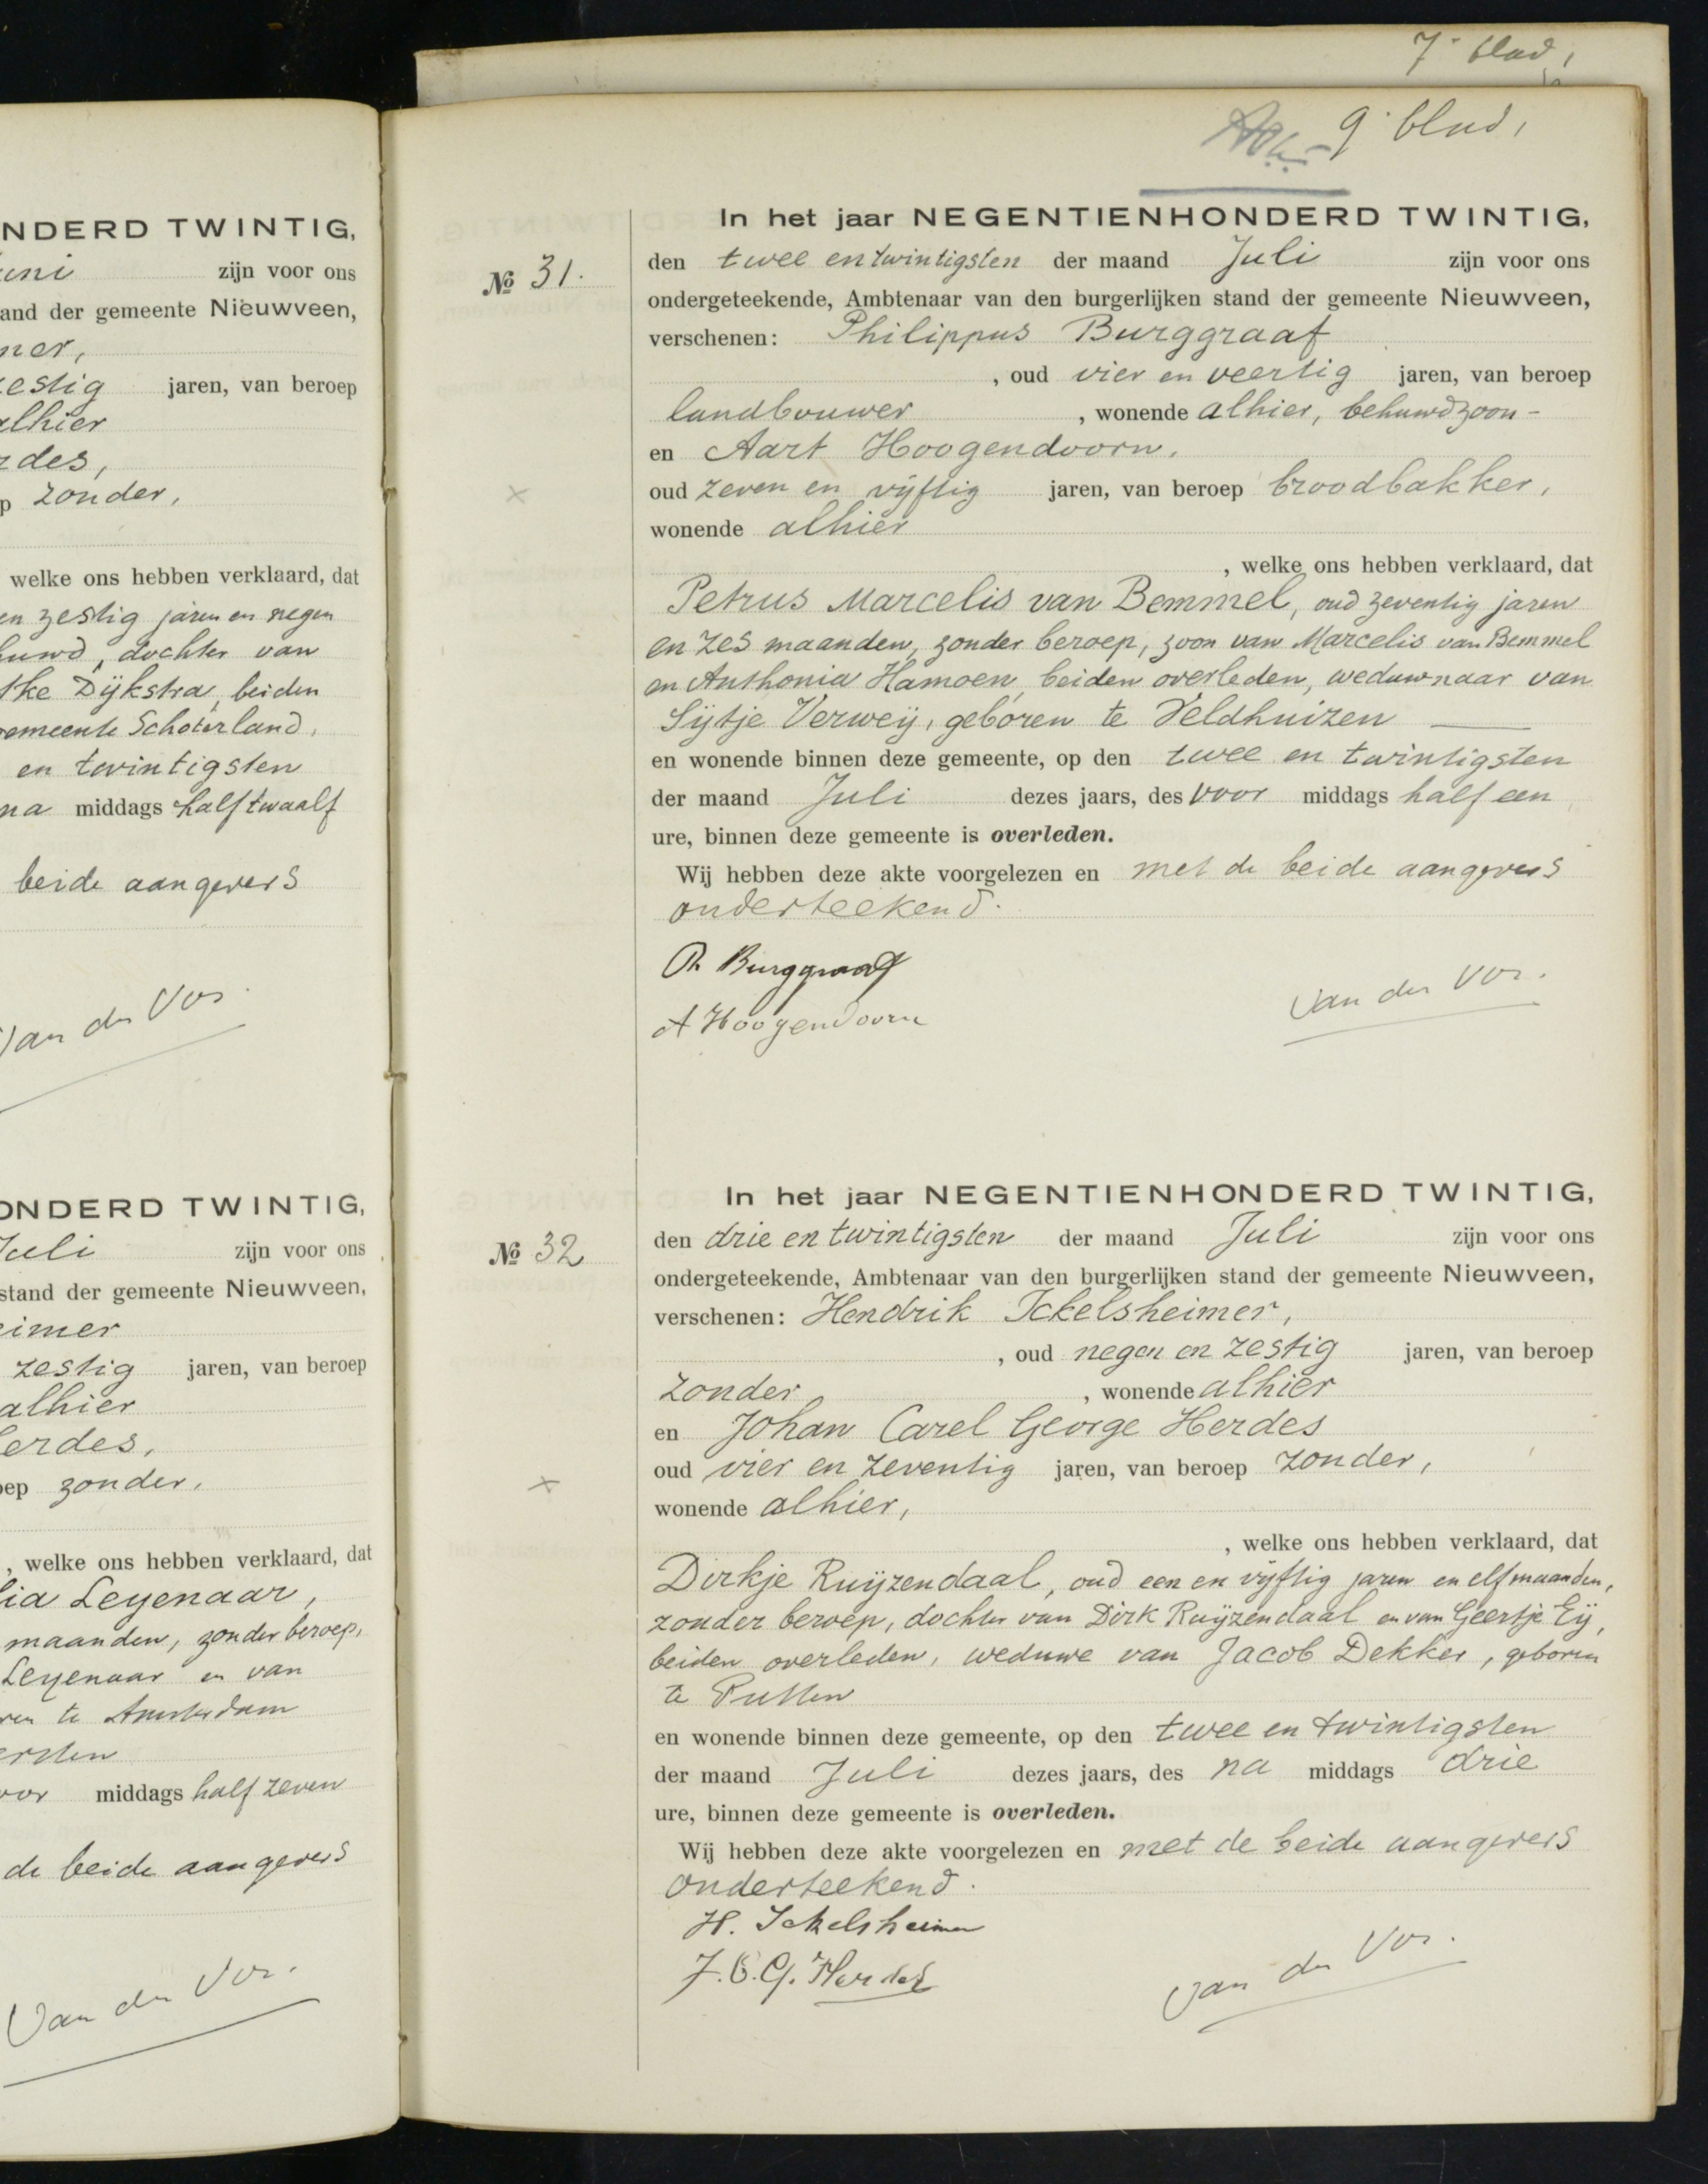 7e blad,
9e blad,
NDERD TWINTIG,
uni zijn voor ons
and der gemeente Nieuwveen,
mer,
zestig jaren, van beroep
alhier
rdes,
p zonder,
welke ons hebben verklaard, dat
en zestig jaren en negen
huwd, dochter van
tke Dijkstra, beiden
gemeente Schoterland,
en twintigsten
na middags half twaalf
beide aangevers
Van der Vos.
ONDERD TWINTIG,
Juli zijn voor ons
stand der gemeente Nieuwveen,
eimer
zestig jaren, van beroep
alhier
erdes,
ep zonder,
, welke ons hebben verklaard, dat
lia Leyenaar,
maanden, zonder beroep,
Leyenaar en van
ren te Amsterdam
ersten
oor middags half zeven
de beide aangevers
Van der Vos.
In het jaar NEGENTIENHONDERD TWINTIG,
№ 31.
den twee en twintigsten der maand Juli zijn voor ons
ondergeteekende, Ambtenaar van den burgerlijken stand der gemeente Nieuwveen,
verschenen: Philippus Burggraaf
, oud vier en veertig jaren, van beroep
landbouwer , wonende alhier, behuwdzoon -
en Aart Hoogendoorn,
oud zeven en vijftig jaren, van beroep broodbakker,
wonende alhier
, welke ons hebben verklaard, dat
Petrus Marcelis van Bemmel, oud zeventig jaren
en zes maanden, zonder beroep, zoon van Marcelis van Bemmel
en Anthonia Hamoen, beiden overleden, weduwnaar van
Sijtje Verweij, geboren te Veldhuizen
en wonende binnen deze gemeente, op den twee en twintigsten
der maand Juli dezes jaars, des voor middags half een
ure, binnen deze gemeente is overleden.
Wij hebben deze akte voorgelezen en met de beide aangevers
onderteekend.
Ph Burggraaf
A Hoogendoorn
Van der Vos.
In het jaar NEGENTIENHONDERD TWINTIG,
№ 32
den drie en twintigsten der maand Juli zijn voor ons
ondergeteekende, Ambtenaar van den burgerlijken stand der gemeente Nieuwveen,
verschenen: Hendrik Ickelsheimer,
, oud negen en zestig jaren, van beroep
zonder , wonende alhier
en Johan Carel George Herdes
oud vier en zeventig jaren, van beroep zonder,
wonende alhier,
, welke ons hebben verklaard, dat
Dirkje Ruijzendaal, oud een en vijftig jaren en elf maanden,
zonder beroep, dochter van Dirk Ruijzendaal en van Geertje Eij,
beiden overleden, weduwe van Jacob Dekker, geboren
te Putten
en wonende binnen deze gemeente, op den twee en twintigsten
der maand Juli dezes jaars, des na middags drie
ure, binnen deze gemeente is overleden.
Wij hebben deze akte voorgelezen en met de beide aangevers
onderteekend.
H. Ickelsheimer
J. C. G. Herdes
Van der Vos.